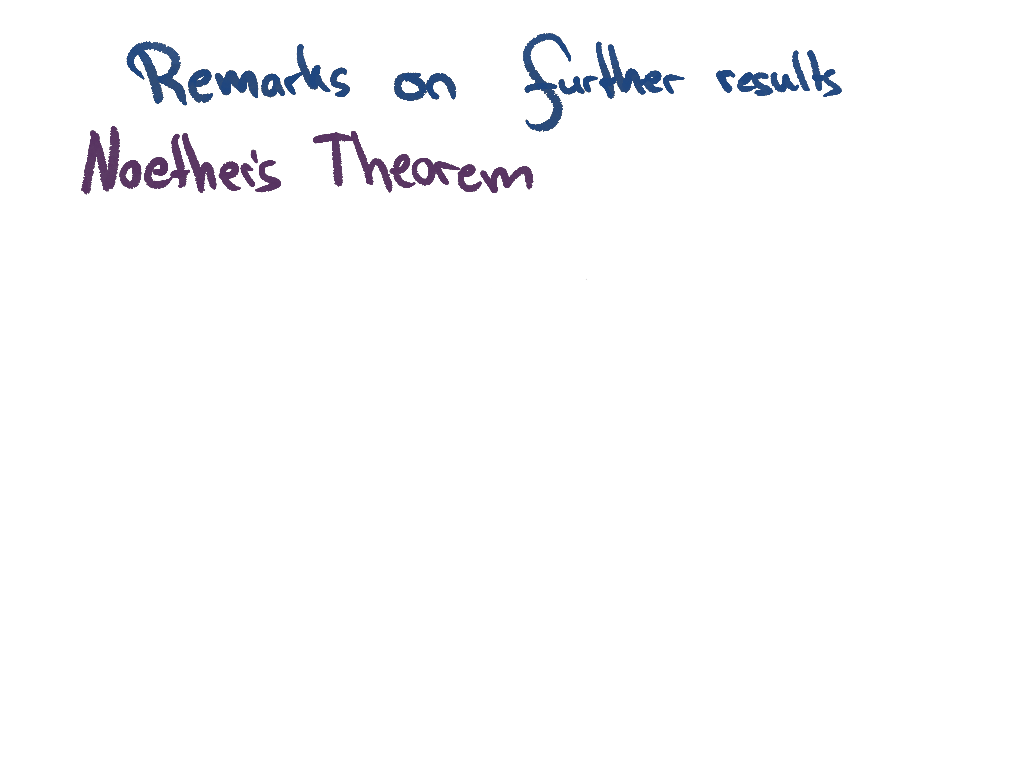 Remarks on further results
Noether's Theorem